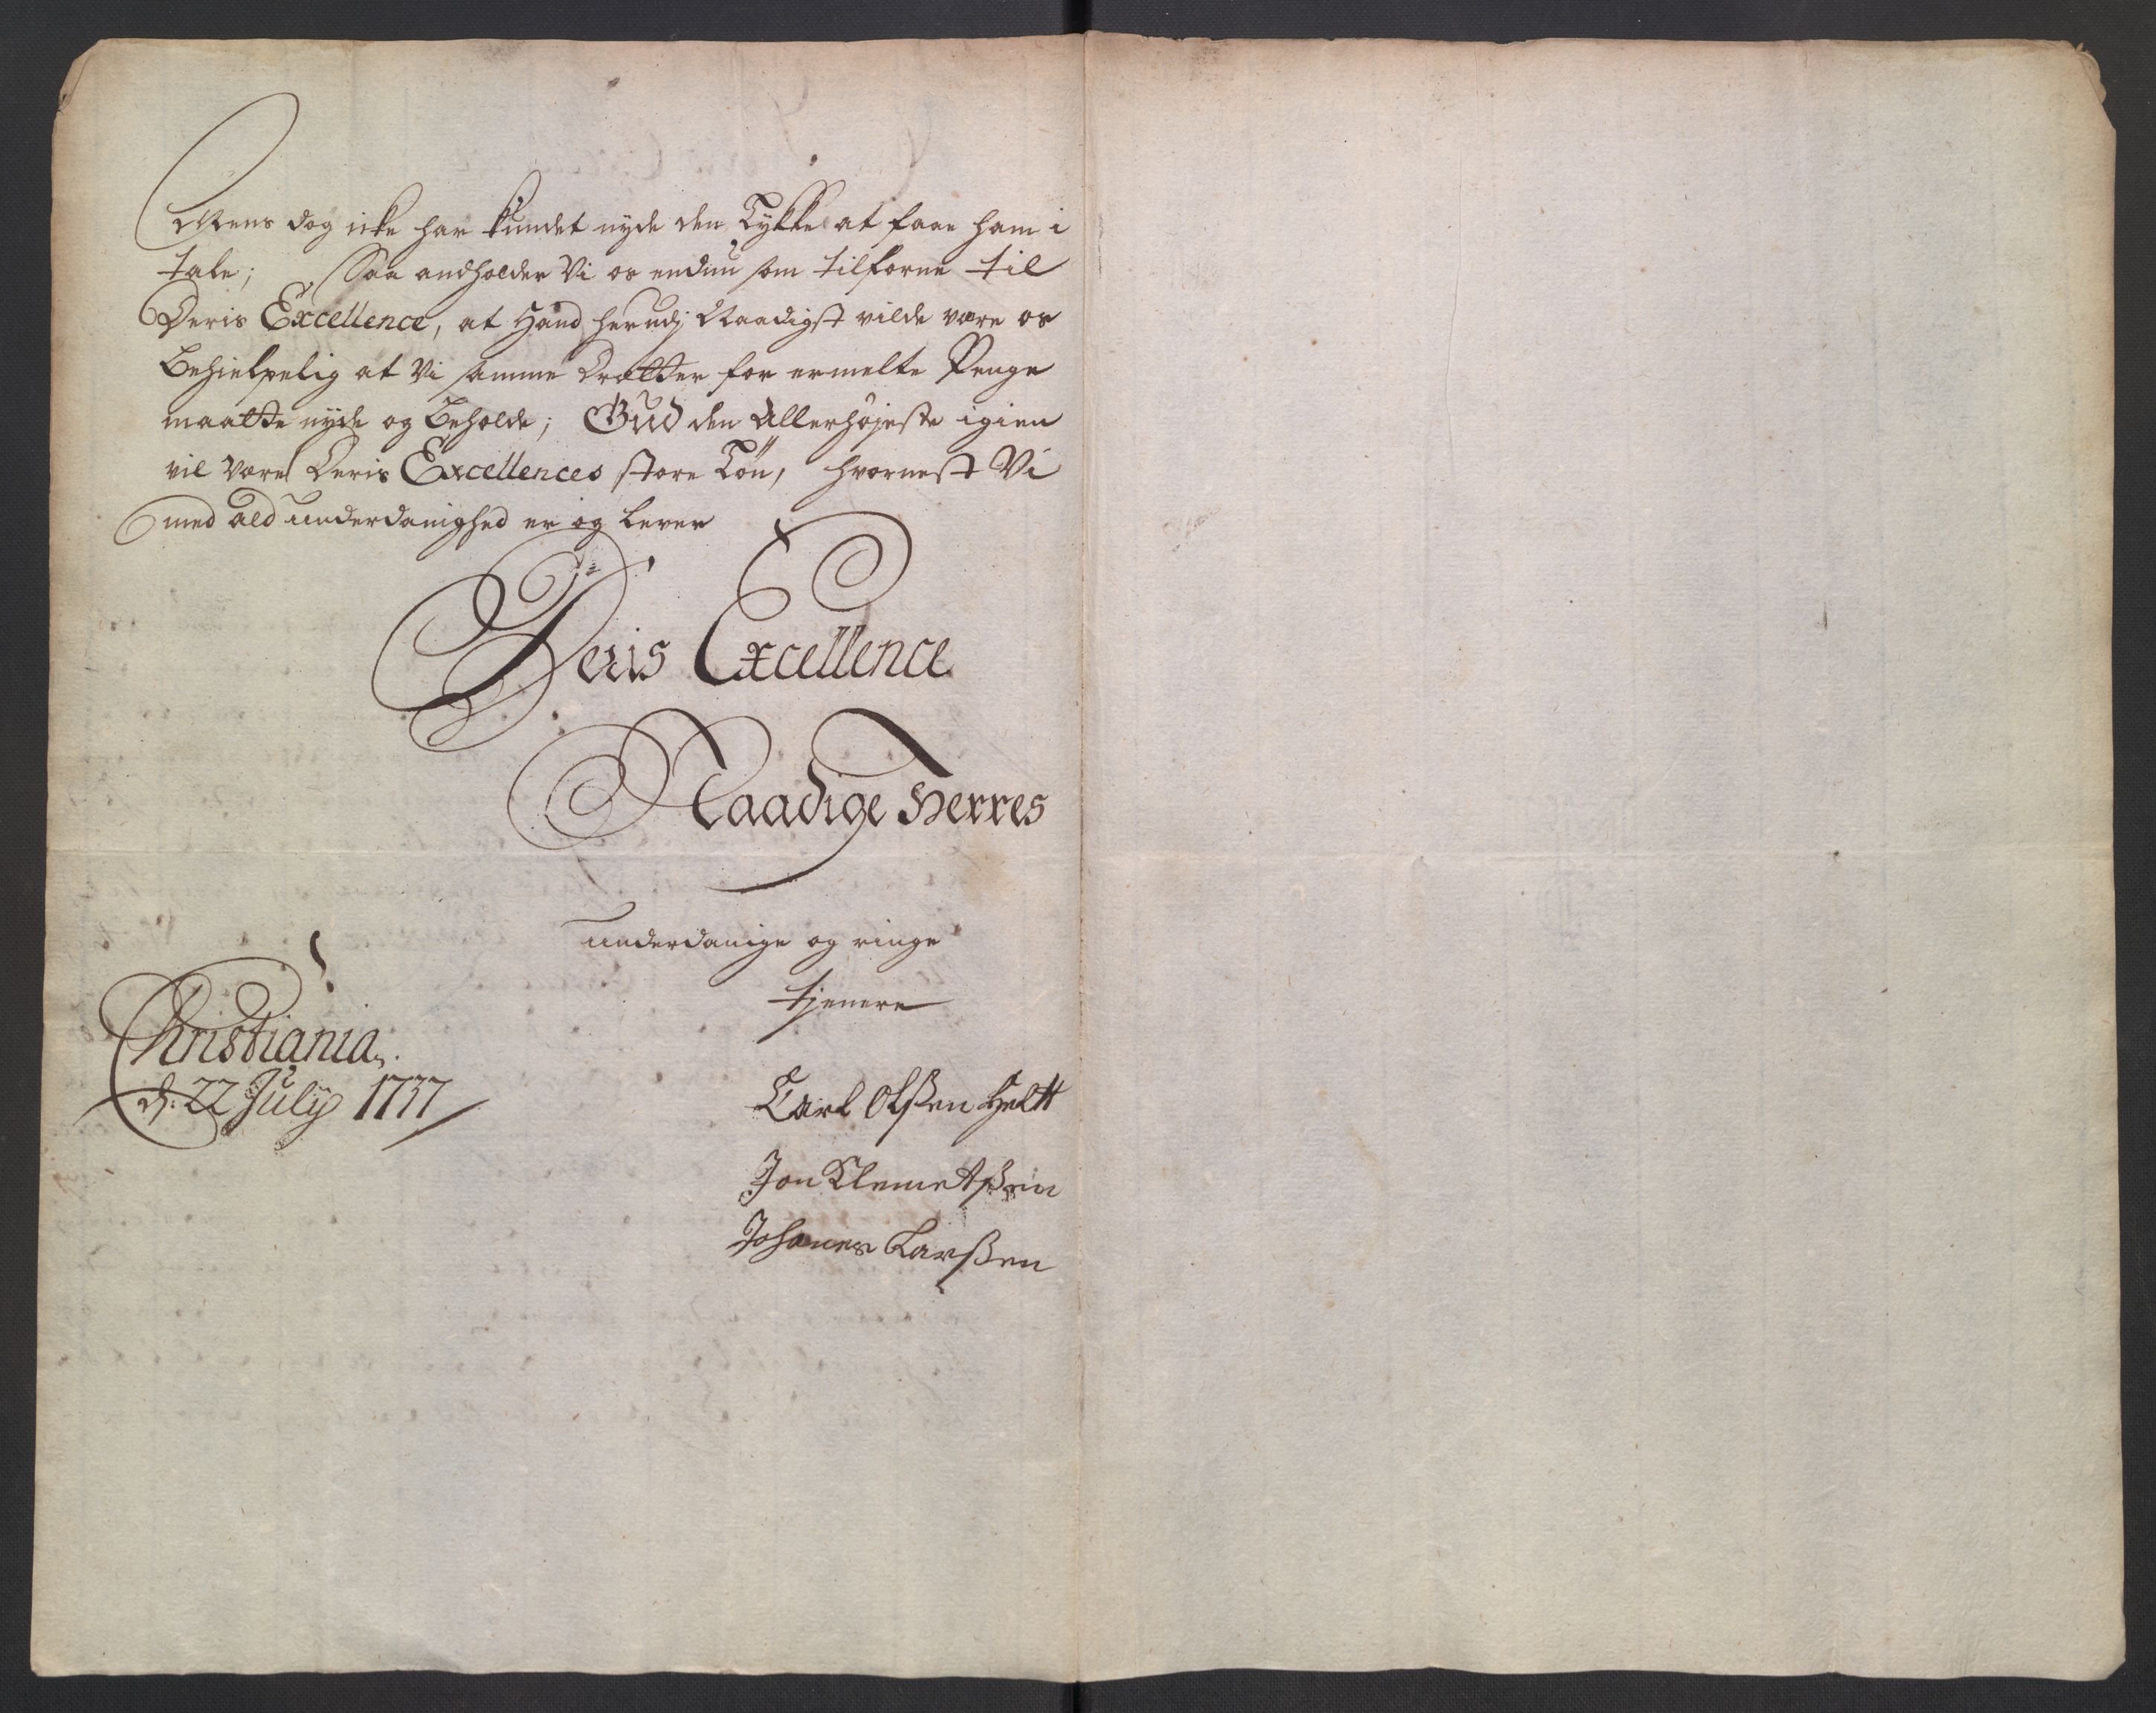 Mens dog icke har kundet nyde den Lykke at faae ham i
tale; Saa andholder Vi os endnu som tilforne til
Deris Excellence, at Hand herudj Naadigst vilde være os
Behielpelig at Vi samme Drætter for ermelte Penge
maatte nyde og Beholde; Gud den Allerhøjeste igien
vil være Deris Excellences store Løn, hvornest Vi
med ald underdanighed er og lever
Deris Excellence
Naadige Herres
underdanige og ringe
tjenere
Christiania
d: 22 July 1737
Carl Olßen Heltt
Jon Klemetßen
Johanes Larßen